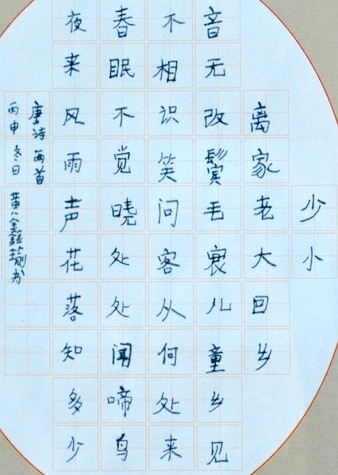 少小
离家老大回乡
音无改鬓毛衰儿童乡见
不相识笑问客从何处来
春眠不觉晓处处闻啼鸟
夜来风雨声花落知多少
唐诗两首
丙申冬日黄鑫书